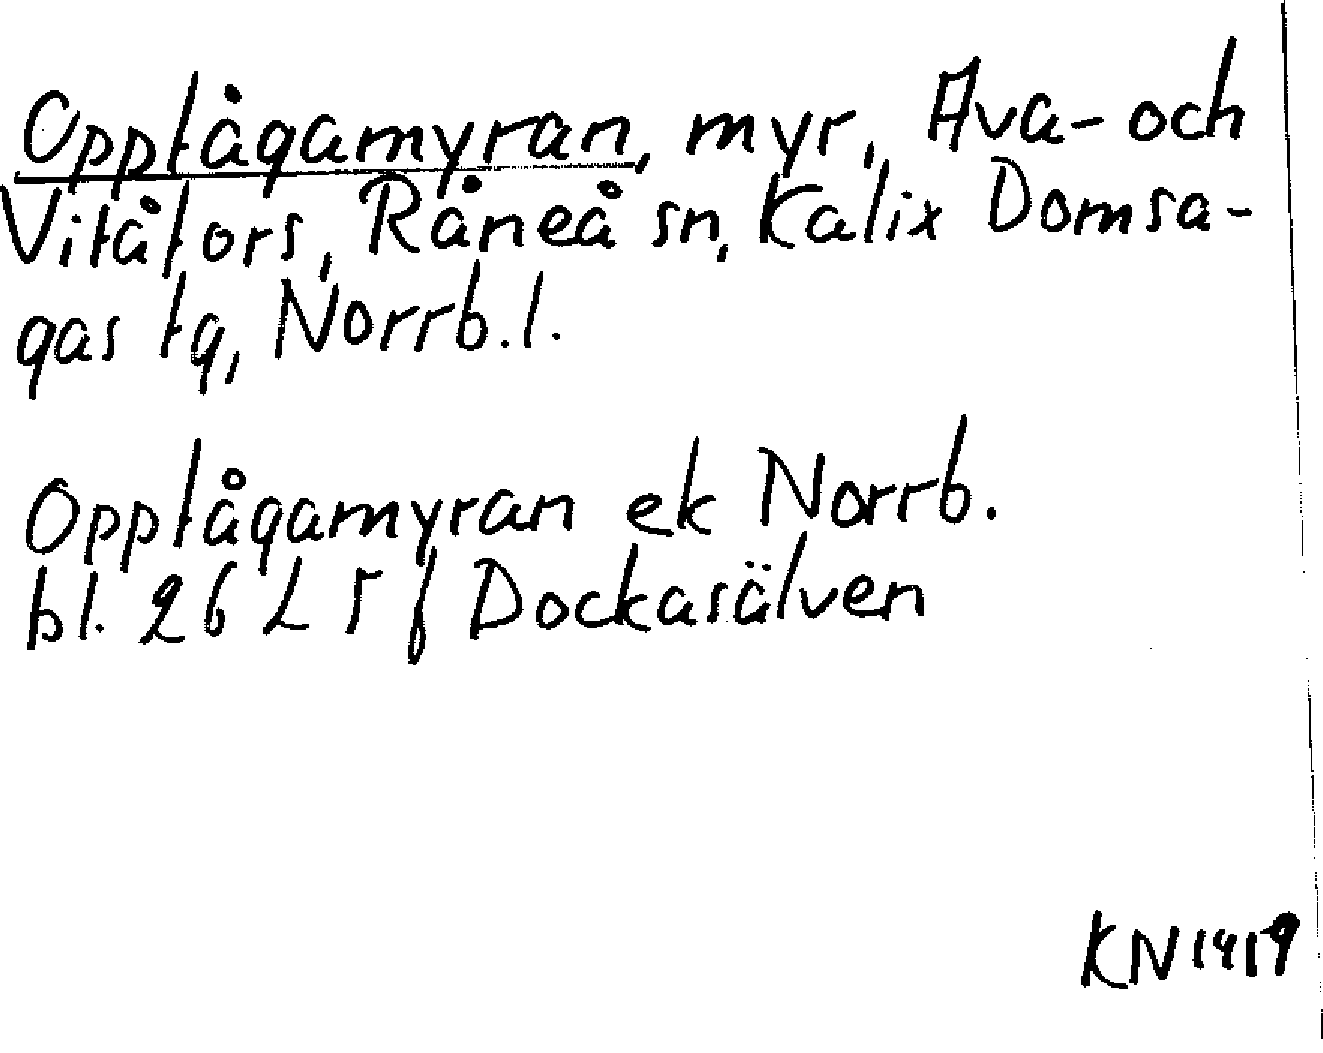 Opplågamyran, myr, Ava- och
Vitåfors, Råneå sn, Kalix Domsa-
gas tg, Norrb.l.
Opplågamyran ek Norrb.
bl. 26 L 5 f Dockasälven
KN1419